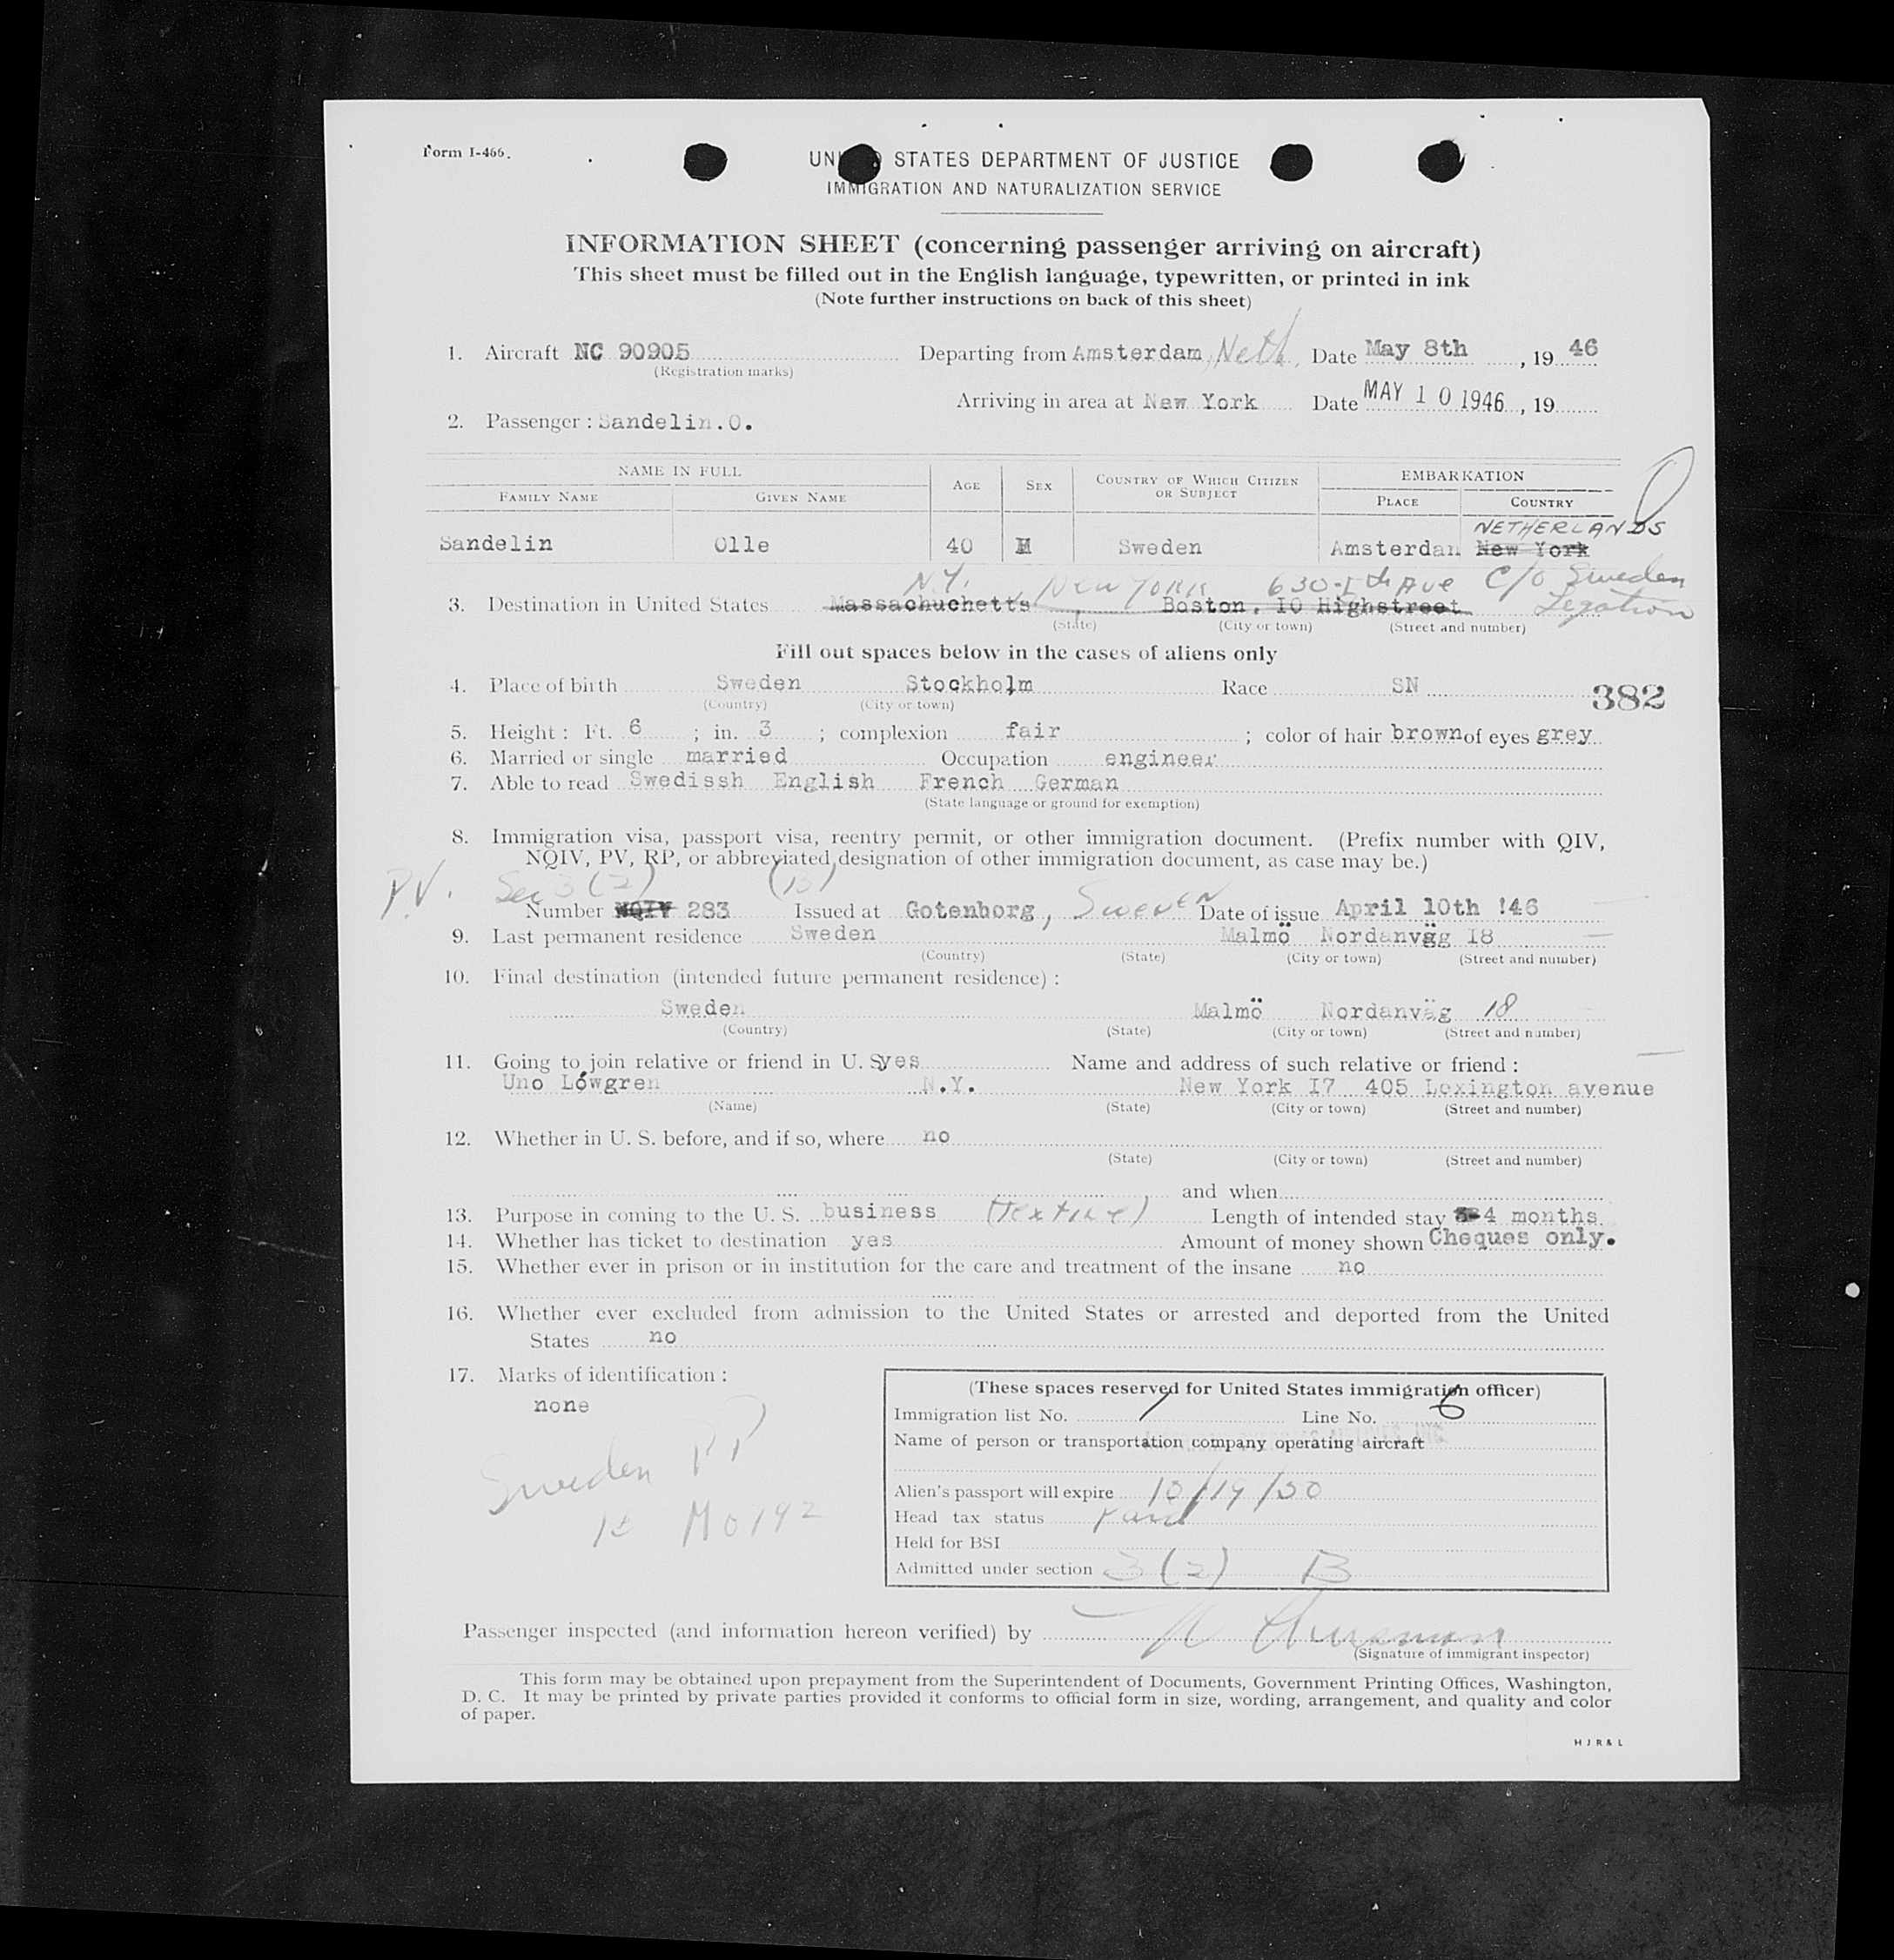 Form I-466.
UNITED STATES DEPARTMENT OF JUSTICE
IMMIGRATION AND NATURALIZATION SERVICE
INFORMATION SHEET (concerning passenger arriving on aircraft)
This sheet must be filled out in the English language, typewritten, or printed in ink
(Note further instructions on back of this sheet)
1. Aircraft NC 90905 Departing from Amsterdam, Neth. Date May 8th, 19 46
(Registration marks)
Arriving in area at New York Date MAY 10 1946, 19
2. Passenger: Sandelin.O.
NAME IN FULL AGE SEX COUNTRY OF WHICH CITIZEN OR SUBJECT EMBARKATION
FAMILY NAME GIVEN NAME PLACE COUNTRY
NETHERLANDS
Sandelin Olle 40 M Sweden Amsterdan New York
N.Y. New York 630-5th Ave C/o Sweden Legation
3. Destination in United States Massachuchetts, Boston. IO Highstreet
(State) (City or town) (Street and number)
Fill out spaces below in the cases of aliens only
4. Place of birth Sweden Stockholm Race SN
382
(Country) (City or town)
5. Height: Ft. 6; in. 3; complexion fair; color of hair brown of eyes grey
6. Married or single married Occupation engineer
7. Able to read Swedissh English French German
(State language or ground for exemption)
8. Immigration visa, passport visa, reentry permit, or other immigration document. (Prefix number with QIV,
NQIV, PV, RP, or abbreviated designation of other immigration document, as case may be.)
P.V. Sec 3 (2) (B)
Number NQIV 283 Issued at Gotenborg, Sweden Date of issue April 10th !46
9. Last permanent residence Sweden Malmö Nordanväg I8
(Country) (State) (City or town) (Street and number)
10. Final destination (intended future permanent residence):
Sweden Malmö Nordanväg 18
(Country) (State) (City or town) (Street and number)
11. Going to join relative or friend in U. S. yes Name and address of such relative or friend:
Uno Lówgren N.Y. New York I7 405 Lexington avenue
(Name) (State) (City or town) (Street and number)
12. Whether in U. S. before, and if so, where no
(State) (City or town) (Street and number)
and when
13. Purpose in coming to the U. S. business (textile) Length of intended stay 4 months
14. Whether has ticket to destination yes Amount of money shown Cheques only.
15. Whether ever in prison or in institution for the care and treatment of the insane no
16. Whether ever excluded from admission to the United States or arrested and deported from the United
States no
17. Marks of identification:
none
Sweden PP
M0192
(These spaces reserved for United States immigration officer)
Immigration list No. 1 Line No. 6
Name of person or transportation company operating aircraft
Alien's passport will expire 10/19/50
Head tax status Paid
Held for BSI
Admitted under section 3(2) B
Passenger inspected (and information hereon verified) by
(Signature of immigrant inspector)
This form may be obtained upon prepayment from the Superintendent of Documents, Government Printing Offices, Washington,
D. C. It may be printed by private parties provided it conforms to official form in size, wording, arrangement, and quality and color
of paper.
H J R & L